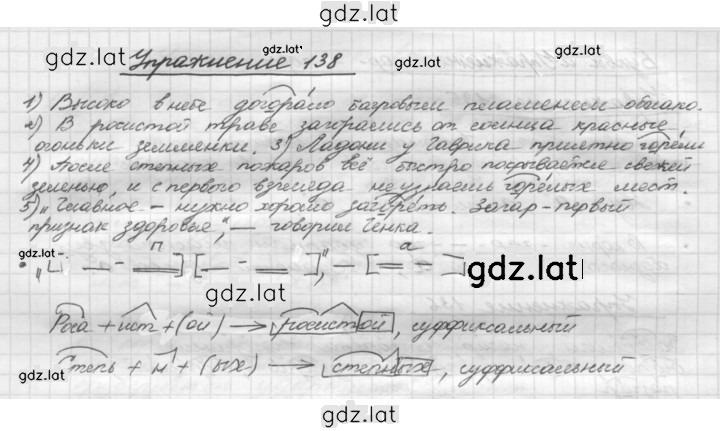 gdz.lat
gdz.lat gdz.lat gdz.lat gdz.lat
Упражнение 138
1) Высоко в небе догорало багровым пламенем облако.
2) В росистой траве загорались от солнца красные
огоньки земляники. 3) Ладони у Гаврика приятно горели
4) После степных пожаров всё быстро покрывается свежей
зеленью, и с первого взгляда не узнаешь горелых мест.
5) „Главное – нужно хорошо загореть. Загар – первый
признак здоровья", – говорил Генка.
gdz.lat П а
gdz.lat gdz.lat
Роса + ист + (ой) → росистой, суффиксальный
Степь + н + (ых) → степных, суффиксальный
gdz.lat
gdz.lat